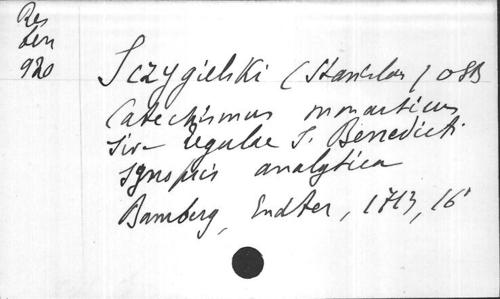 Res
Len
920
Sczygielski (Stanislas) OSB
Catechismus monasticus
Sive Regulae S. Benedicti
Synopsis analytica
Bamberg, Endter, 1713, 16°